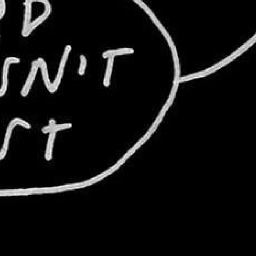 D
SN'T
ST